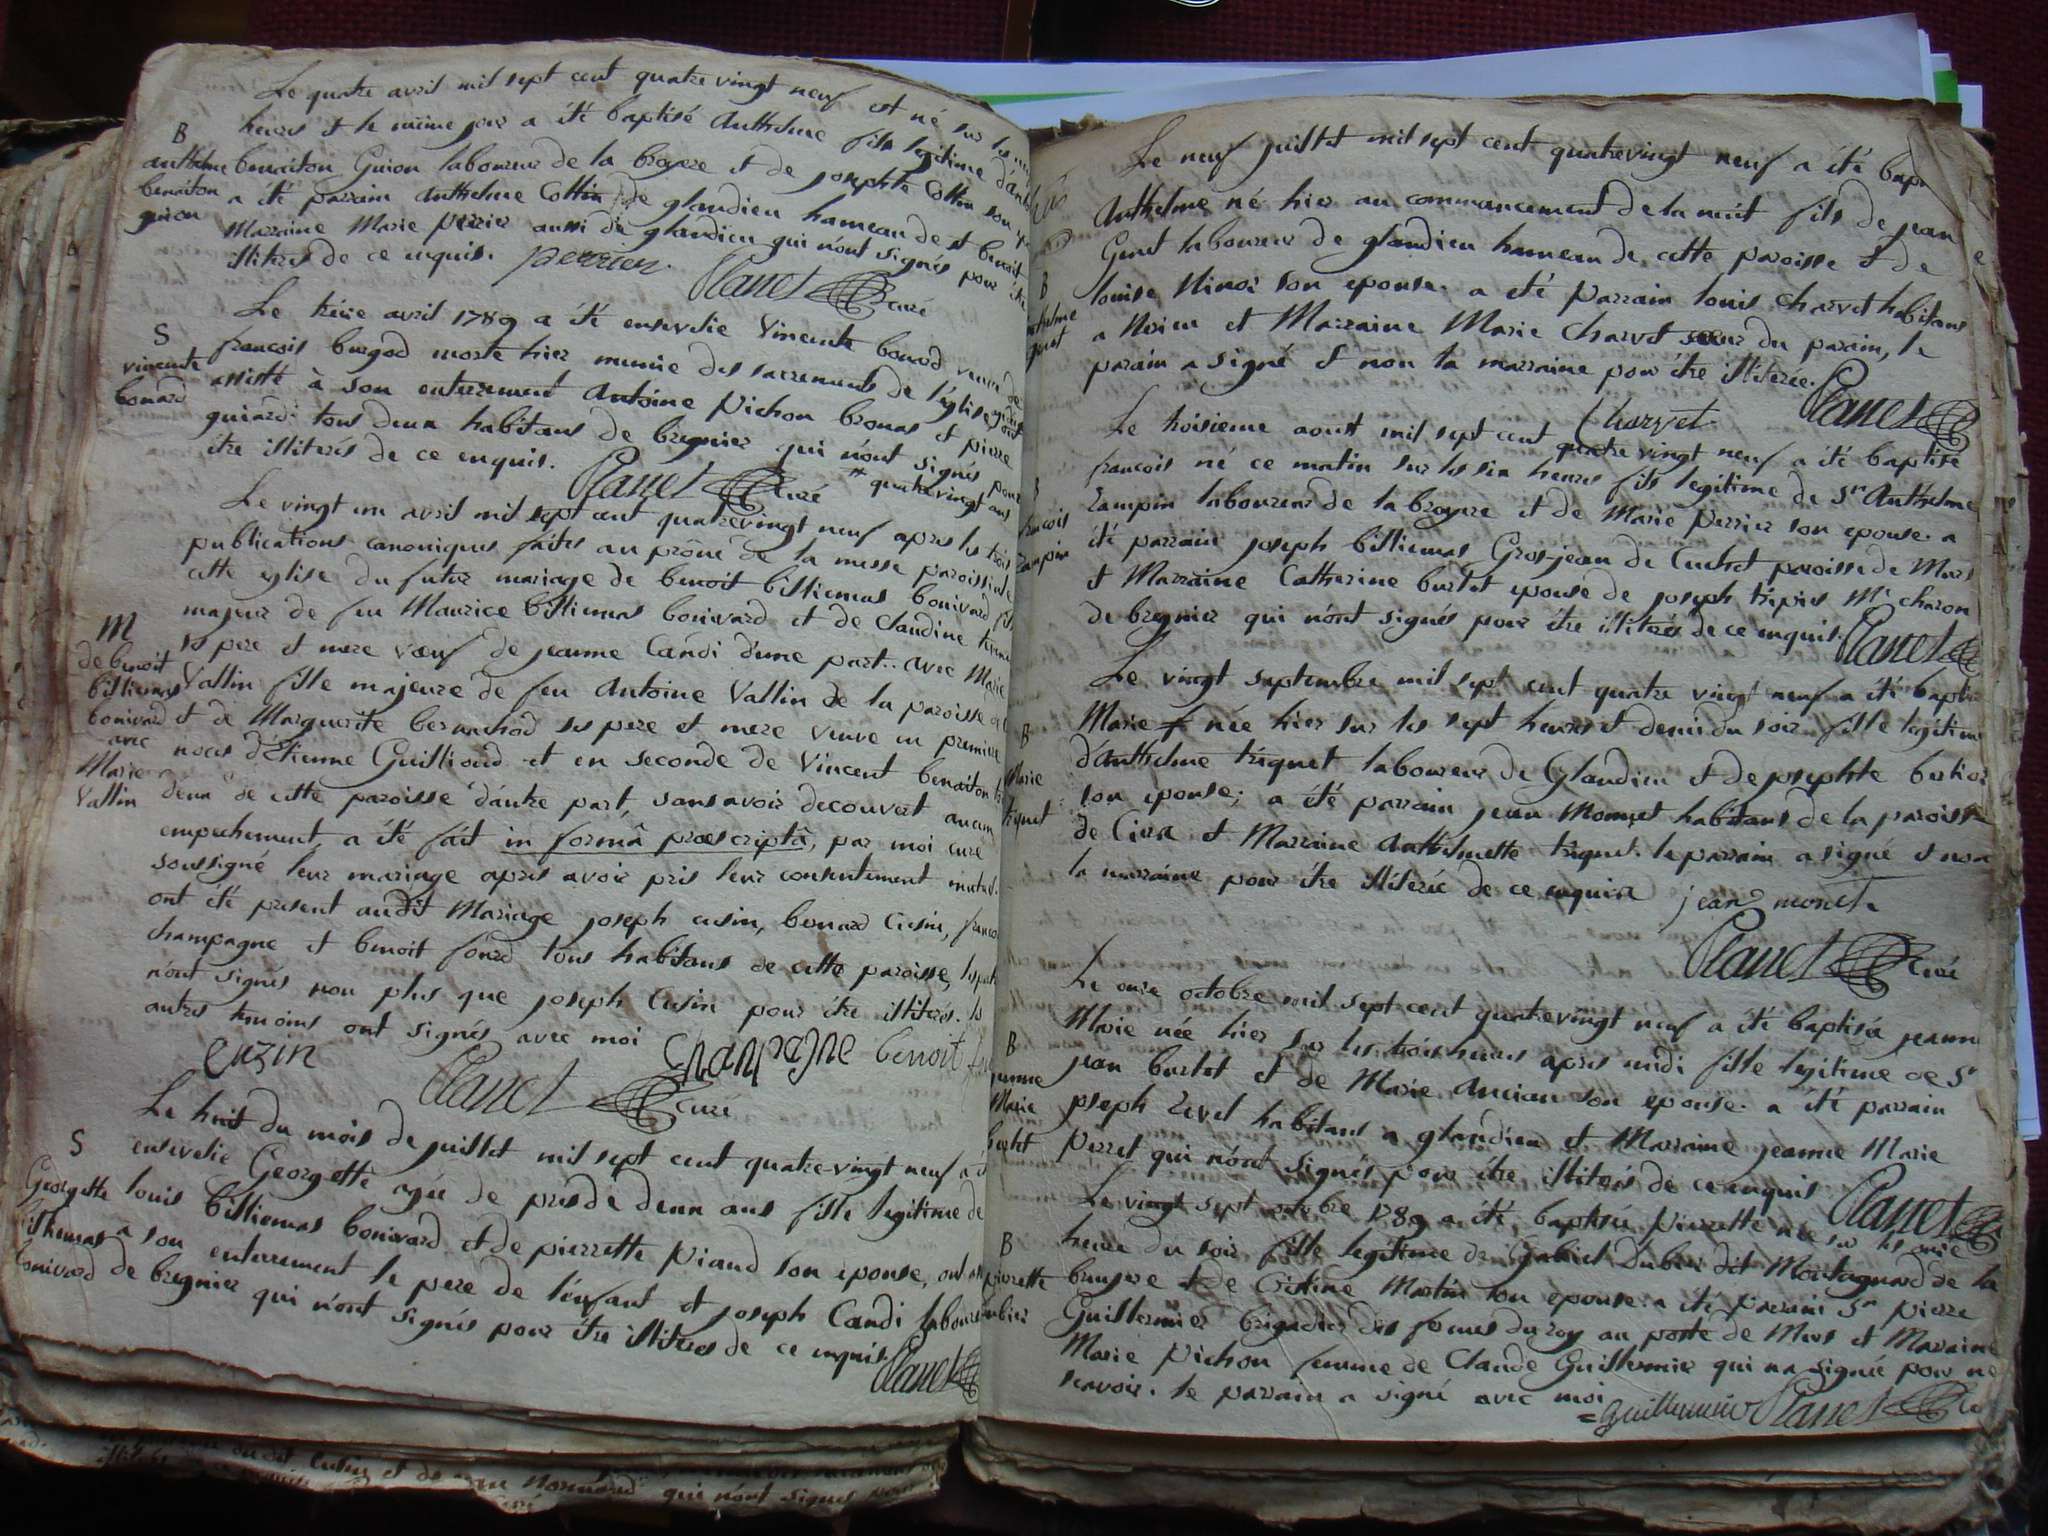 Le quatre avril mil sept cent quatre vingt neuf est né sur les
heures et le même jour a été baptisé Anthelme fils legitime
B
anthelme benoiton Guion laboureur de la bruyere et de josephte Cottin son
benoiton
guion
a été parrain Anthelme Cottin de glandieu hameau de st benoit
Marraine Marie perrier aussi de glandieu qui n'ont signés pour
illiteres de ce enquis. perrier
Planet curé
Le treise avril 1789 a été ensevelie Vincente bonard veuve de
S
vincente
bonard
francois burgod morte hier munie des sacrements de l'église
assisté à son enterrement Antoine Pichon bronas et pierre
guiard tous deux habitans de bregnier qui n'ont signés pour
être illiterés de ce enquis. Planet curé
quatrevingt ans
Le vingt un avril mil sept cent quatrevingt neuf apres les trois
publications canoniques faites au prône de la messe paroissiale
cette eglise du futur mariage de benoit billiemas bonivard fils
majeur de feu Maurice billiemas bonivard et de Claudine
M
de benoit
billiemas
bonivard
avec
Marie
Vallin
ses pere et mere vœuf de jeanne Candi d'une part. avec Marie
Vallin fille majeure de feu Antoine Vallin de la paroisse
et de Marguerite bernachod ses pere et mere veuve en premiere
noces d'Etienne Guillioud et en seconde de Vincent benoiton
deux de cette paroisse d'autre part, sans avoir decouvert aucun
empechement, a été fait in formâ proescriptâ, par moi curé
soussigné leur mariage apres avoir pris leur consentement mutuel.
ont été present audit Mariage joseph cusin, bonard Cusin,
champagne et benoit fourd tous habitans de cette paroisse,
n'ont signés non plus que joseph Cusin pour être illiterés. les
autres temoins ont signés avec moi champagne benoit
cuzin
Planet curé
Le huit du mois de juillet mil sept cent quatre-vingt neuf a
S
Georgette
billiemas
bonivard
ensevelie Georgette agée de prés de deux ans fille legitime de
louis billiemas bonivard et de pierrette Piand son epouse, ont
a son enterrement le pere de l'enfant et joseph Candi
de bregnier qui n'ont signés pour être illiteres de ce enquis.
Planet
Le neuf juillet mil sept cent quatrevingt neuf a été
Anthelme né hier au commancement de la nuit fils de jean
B
Guret laboureur de glandieu hameau de cette paroisse et de
louise Ninoz son epouse. a eté parrain louis charvet habitans
a Murieu et Marraine Marie Charvet sœur du parain, le
parain a signé et non la marraine pour être illiterée.
Charvet Planet
Le troisieme aoust mil sept cent quatre vingt neuf a été baptisé
francois né ce matin sur les six heures fils legitime de Sr Anthelme
Zampin laboureur de la bruyere et de Marie Perrier son epouse. a
été parrain joseph billiemas Gros-jean de Cuchet paroisse de Murs
et Marraine Catherine burlet epouse de joseph tripies Me charon
de bregnier qui n'ont signés pour être illiterés de ce enquis. Planet
Le vingt septembre mil sept cent quatre vingt neuf a été
B
Marie
triquet
Marie née hier sur les sept heures et demi du soir fille légitime
d'Anthelme triquet laboureur de Glandieu et de josephte
son epouse; a été parrain jean Monnet habitans de la paroisse
de Cira et Marraine Anthelmette triquet. le parrain a signé et non
la marraine pour être illiterée de ce enquise jean monet
Planet curé
Le onze octobre mil sept cent quatrevingt neuf a été baptisée jeanne
B
jeanne
Marie
burlet
Marie née hier sur les trois heures apres midi fille legitime de Sr
jean burlet et de Marie Ancian son epouse. a été parrain
joseph Revel habitans a glandieu et Marraine jeanne Marie
Perret qui n'ont signés pour être illiterés de ce enquis
Planet
Le vingt sept octobre 1789 a été baptisée Pierrette née sur les
B
pierrette
heure du soir fille legitime de Gabriel Dubier dit Montagnard de la
bruyere et de Cristine Martin son epouse. a été parrain Sr pierre
Guillermier brigadier des fermes du roy au poste de Murs et Marraine
Marie Pichon femme de Claude Guillermier qui n'a signée pour ne
scavoir. le parrain a signé avec moi
guillermier Planet